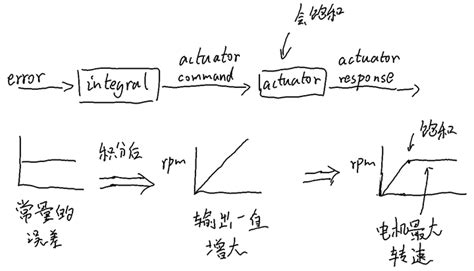 会饱和
error
integral
actuator
command
actuator
actuator
response
积分后
rpm
rpm
饱和
常量的
误差
输出一直
增大
电机最大
转速